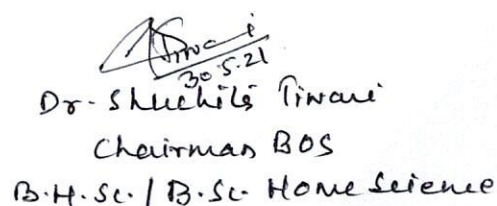 Tiwari
30.5.21
Dr. Shuchita Tiwari
Chairman BOS
B.H.Sc. / B.Sc. Home Science